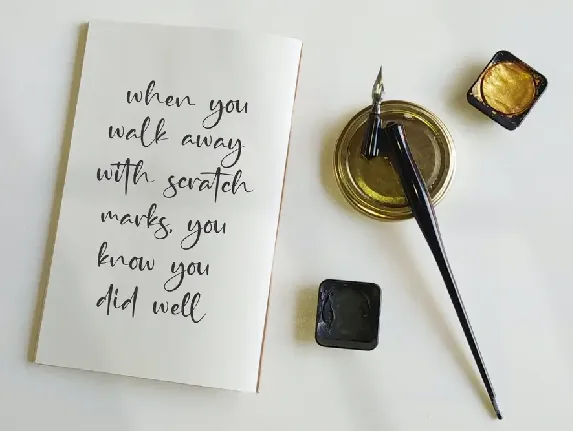 when you
walk away
with scratch
marks, you
know you
did well